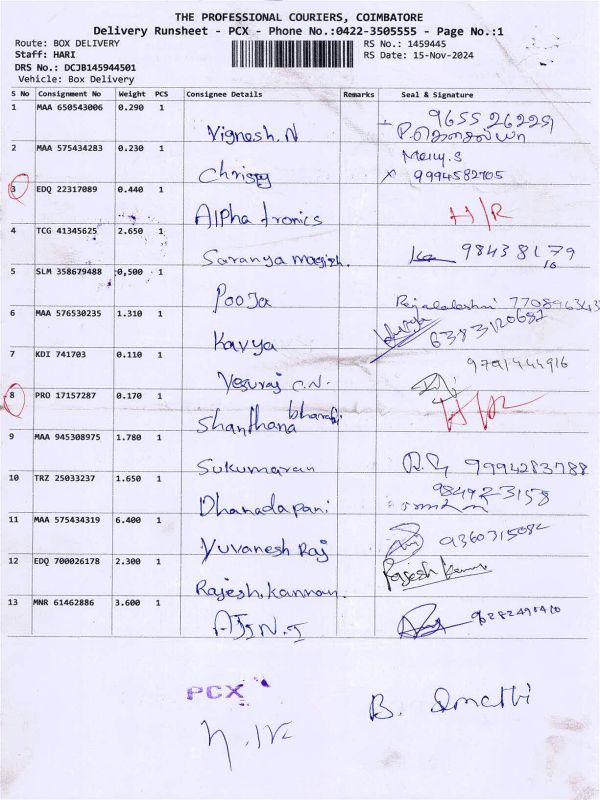 THE PROFESSIONAL COURIERS, COIMBATORE
Delivery Runsheet - PCX - Phone No.:0422-3505555 - Page No.:1
Route: BOX DELIVERY RS No.: 1459445
Staff: HARI RS Date: 15-Nov-2024
DRS No.: DCJB145944501
Vehicle: Box Delivery
S No Consignment No Weight PCS Consignee Details Remarks Seal & Signature
1 MAA 650543006 0.290 1 Vignesh.N
2 MAA 575434283 0.230 1 Mary.S
Chrispy x 9994582705
3 EDQ 22317089 0.440 1 Alpha tronics H/R
4 TCG 41345625 2.650 1 Saranya magizh.
5 SLM 358679488 0,500 1 Pooja Rajalakshmi
6 MAA 576530235 1.310 1 Kavya 6383120682
7 KDI 741703 0.110 1 Yesuraj C.N. 9791444916
8 PRO 17157287 0.170 1 Shanthana bharathi H/R
9 MAA 945308975 1.780 1 Sukumaran 9994283788
10 TRZ 25033237 1.650 1 Dhanadapani
11 MAA 575434319 6.400 1 Yuvanesh Raj 9360315082
12 EDQ 700026178 2.300 1 Rajesh.kannan. Rajesh Kannan
13 MNR 61462886 3.600 1
PCX
B.